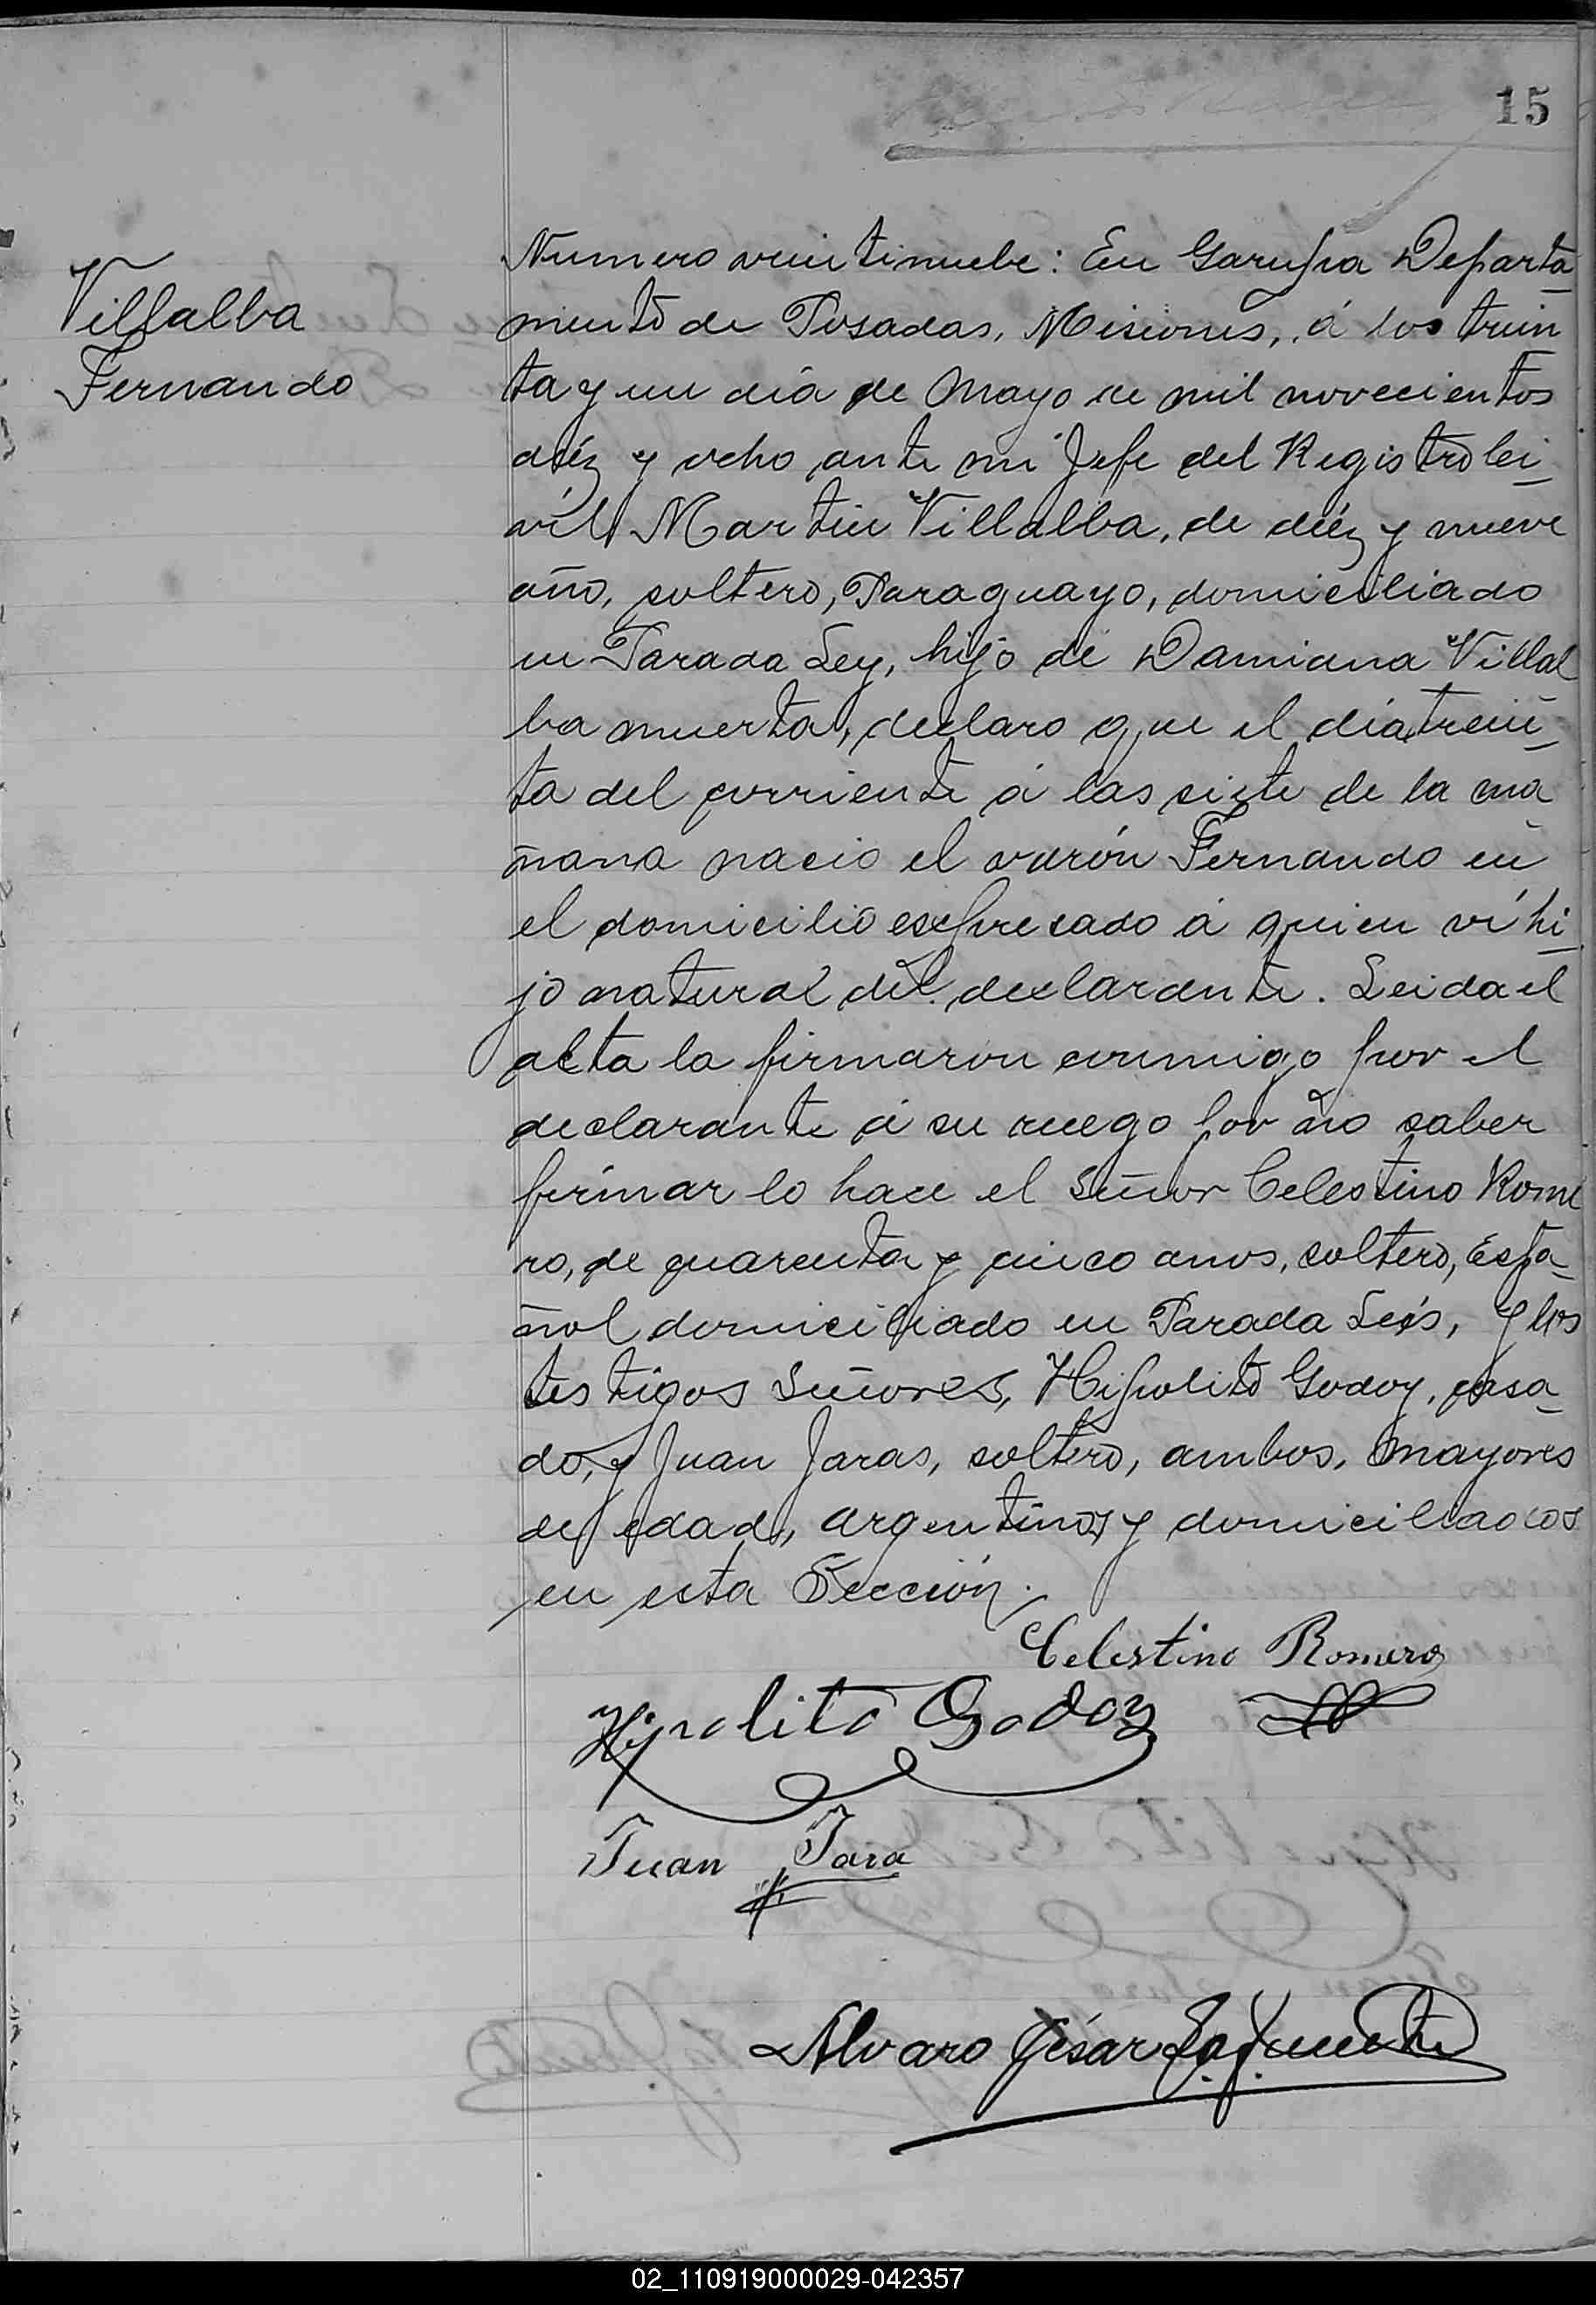 15
Villalba
Fernando
Numero veintinuebe: En Garupa Departa
mento de Posadas, Misiones, á los trein
ta y un día de Mayo de mil novecientos
diéz y ocho ante mi Jefe del Registro Ci
vil Martin Villalba, de diéz y nueve
año, soltero, Paraguayo, domiciliado
en Parada Ley, hijo de Damiana Villal
ba muerta, declaro que el día trein
ta del corriente á las siete de la ma
ñana nacio el varón Fernando en
el domicilio espresado á quien ví hi
jo natural del declarante. Leida el
acta la firmaron conmigo por el
declarante á su ruego por no saber
firmar lo hace el Señor Celestino Rome
ro, de cuarenta y cinco anos, soltero, Espa
ñol domiciliado en Parada Leis, y los
testigos Señores, Hipolito Godoy, casa
do, y Juan Jaras, soltero, ambos, mayores
de edad, argentinos y domiciliados
en esta Sección.
Celestino Romero
Hipolito Godoy
Juan Jara
Alvaro César Lafuente
02_110919000029-042357